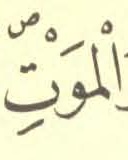 الْمَوْتِ ص